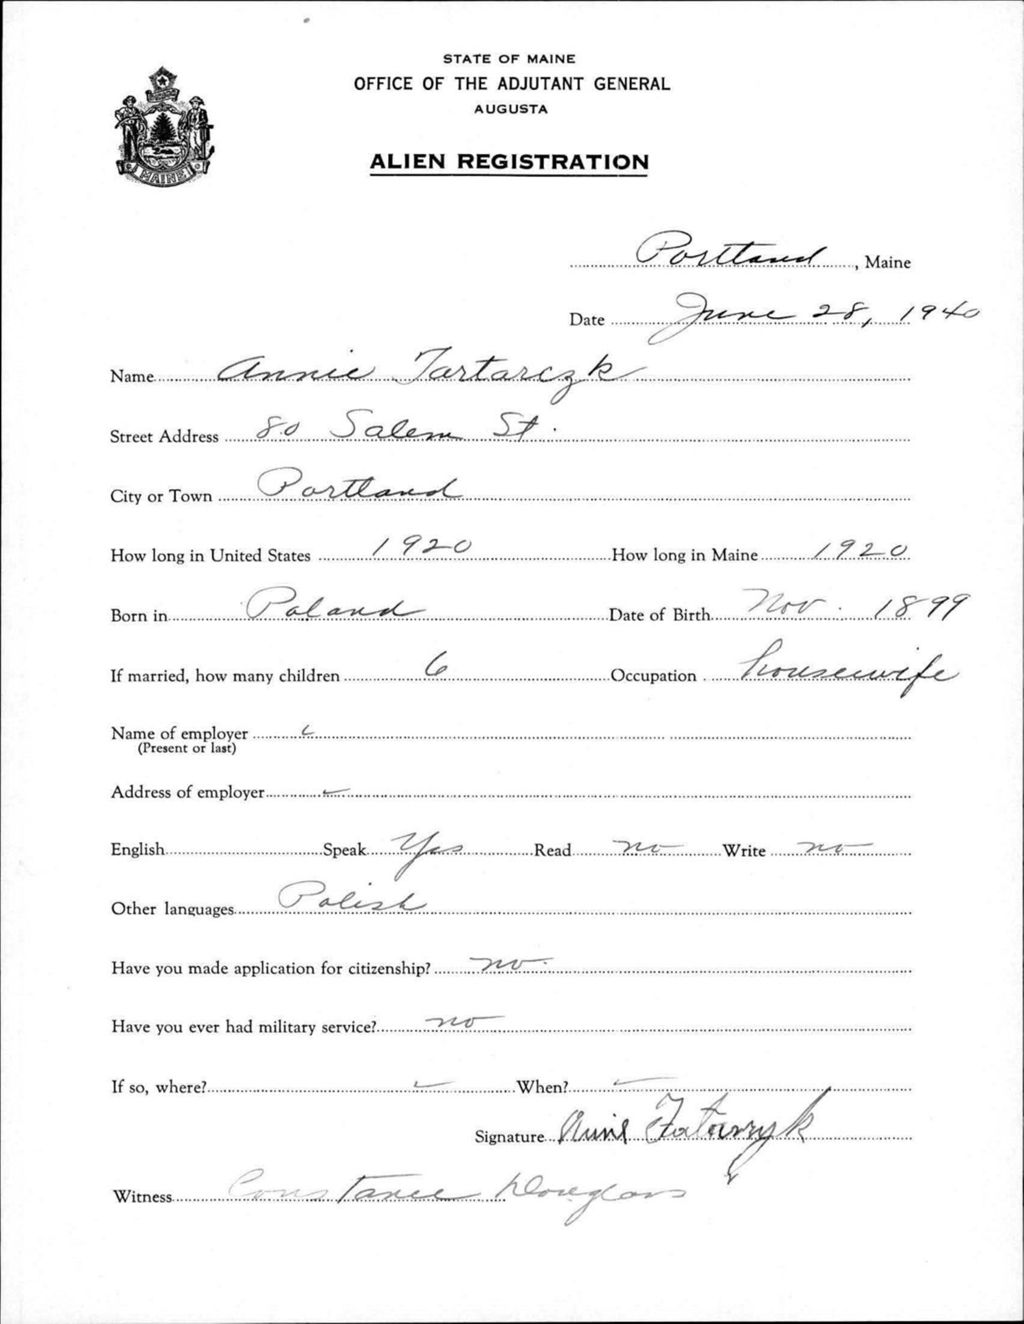 STATE OF MAINE
OFFICE OF THE ADJUTANT GENERAL
AUGUSTA
MAINE
ALIEN REGISTRATION
Portland, Maine
Date June 28, 1940
Name Annie Tartarczk
Street Address 80 Salem St.
City or Town Portland
How long in United States 1920 How long in Maine 1920
Born in Poland Date of Birth Nov. 1899
If married, how many children 6 Occupation housewife
Name of employer
(Present or last)
Address of employer
English Speak Yes Read no Write no
Other languages Polish
Have you made application for citizenship? no
Have you ever had military service? no
If so, where? When?
Signature
Witness Constance Douglass